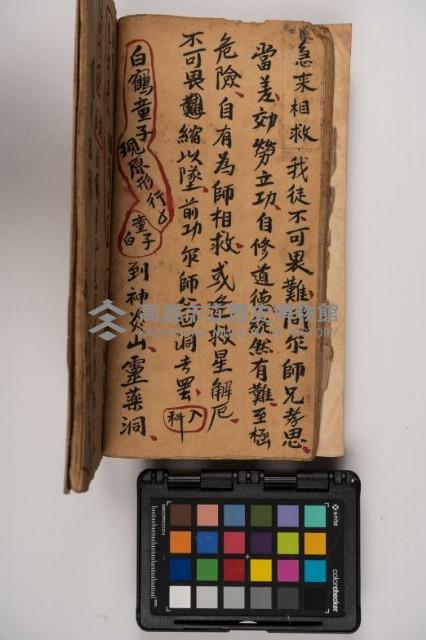 急来相救我徒不可畏難同尔師兄孝思
當差効勞立功自修道德縱然有難至極
危險自有為師相救或逢救星解厄
不可畏難縮以墜前功尔師台回洞去罢
入科
白鶴童子現原形行白
童子白
到神炎山靈藥洞
高雄市立歷史博物館
KAOHSIUNG MUSEUM OF HISTORY
x-rite
colorchecker